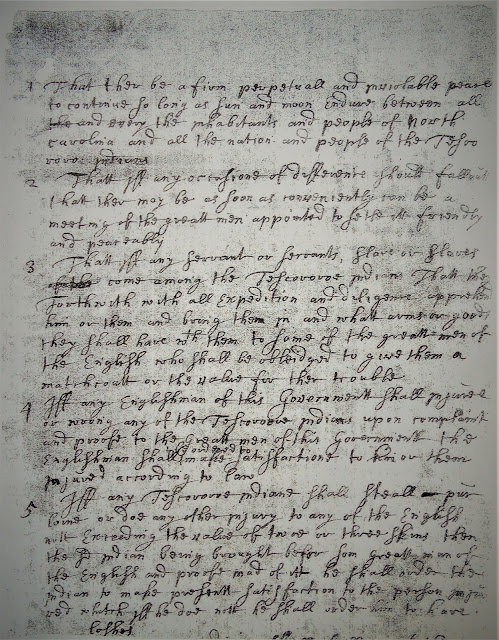 1 That ther be a firm perpetuall and inviolable peace
to continue so long as sun and moon Endure between all
the and every the inhabitants and people of North
Carolina and all the nation and people of the Tesco
roro indians
2 That Iff any occasione of difference should fallout
that ther may be as soon as conveniently can be a
meeting of the greatt men appointed to settle itt friendly
and peaceably
3 Thatt iff any servant or servants, slave or slaves
come among the Tescororoe indians Thatt the
forthwith with all Expedition and diligence apprehe
him or them and bring them in and whatt arms or goods
they shall have wt them to some of the great men of
the English who shall be obleidged to give them a
matchcoatt or the value for ther trouble
4 Iff any Englishman of this Governmentt shall injure
or wrong any of the Tescororoe indians upon complaint
and proofe to the Greatt men of this Governmentt the
Englishman shall be ordered to make satisfactione to him or them
injured according to Law
5 Iff any Tescororoe indiane shall steall pur
loine or doe any other injury to any of the English
nott Exceading the value of two or three skins then
the sd indian being brought befor som greatt man of
the English and proofe mad of itt he shall order the
indian to make presentt satisfaction to the person inju
red which iff he doe nott he shall order him to have
lashes